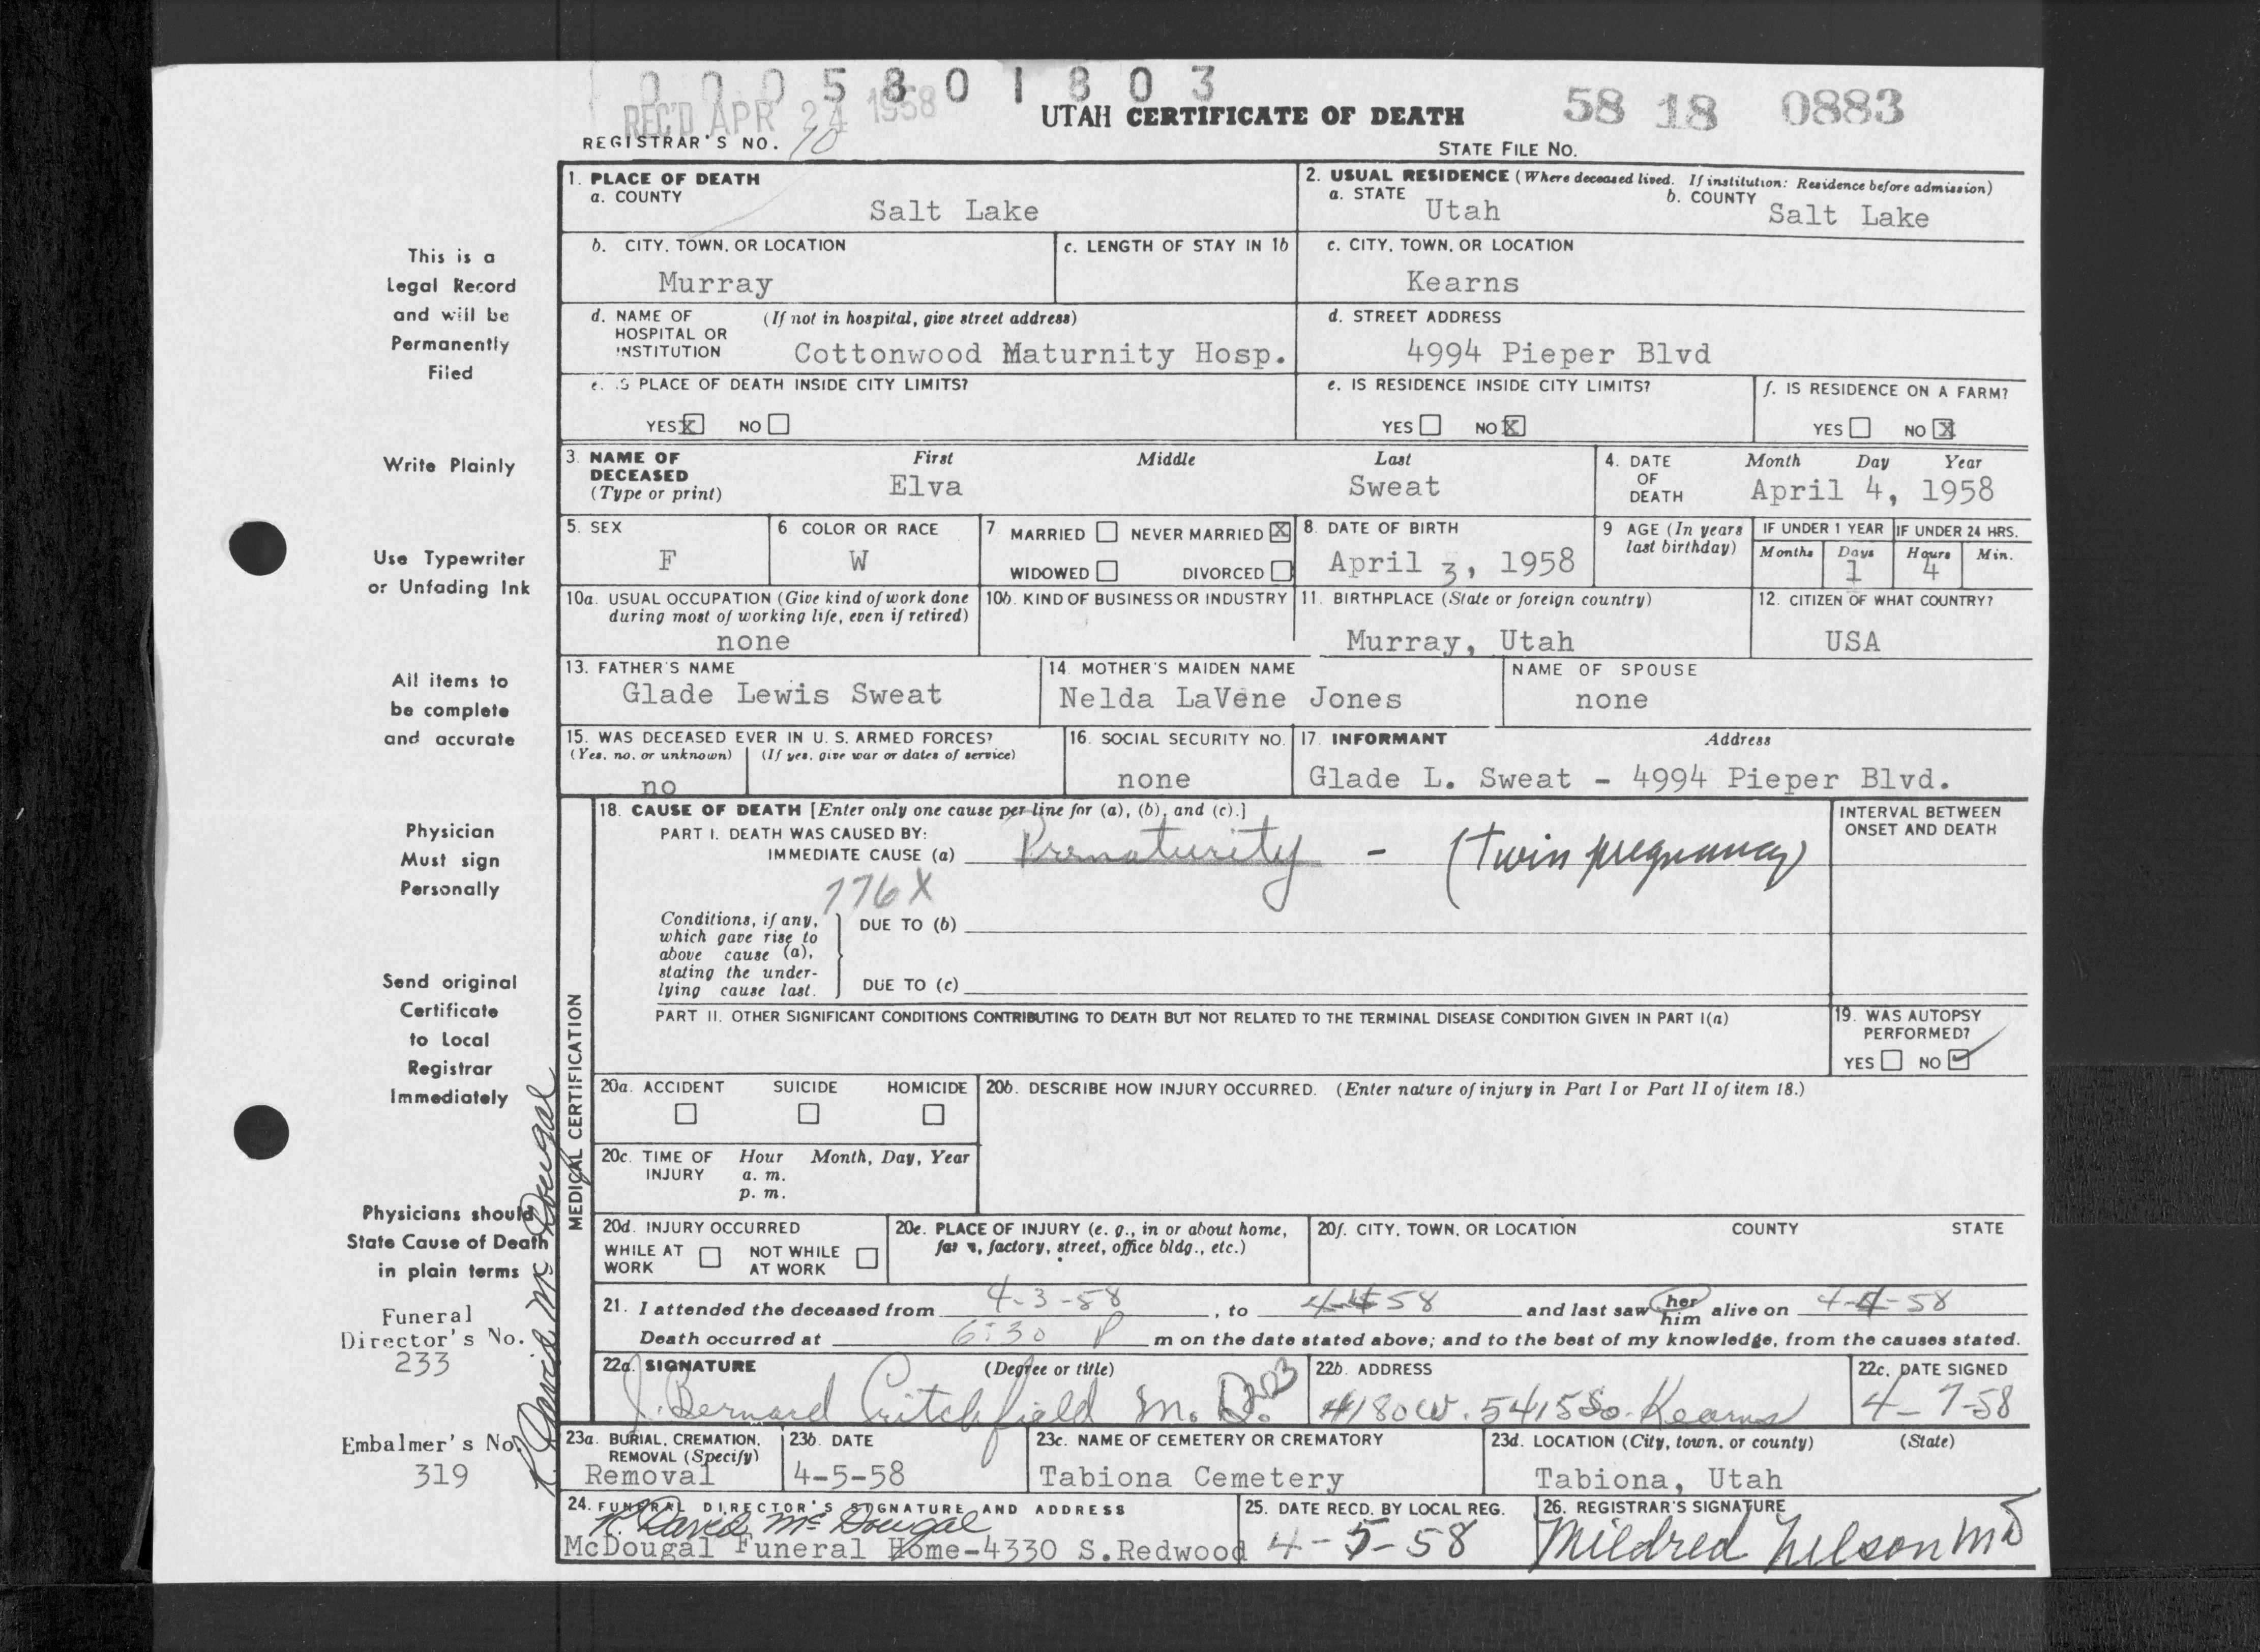 0 0 0 5 8 0 1 8 0 3
REC'D APR 24 1958
UTAH CERTIFICATE OF DEATH
58 18 0883
REGISTRAR'S NO. 10
STATE FILE NO.
This is a
Legal Record
and will be
Permanently
Filed
Write Plainly
Use Typewriter
or Unfading Ink
All items to
be complete
and accurate
Physician
Must sign
Personally
Send original
Certificate
to Local
Registrar
Immediately
Physicians should
State Cause of Death
in plain terms
Funeral
Director's No.
233
Embalmer's No.
319
R. David McDougal
1. PLACE OF DEATH
a. COUNTY
Salt Lake
2. USUAL RESIDENCE (Where deceased lived. If institution: Residence before admission)
a. STATE Utah b. COUNTY Salt Lake
b. CITY, TOWN, OR LOCATION
Murray
c. LENGTH OF STAY IN 1b
c. CITY, TOWN, OR LOCATION
Kearns
d. NAME OF (If not in hospital, give street address)
HOSPITAL OR
INSTITUTION Cottonwood Maturnity Hosp.
d. STREET ADDRESS
4994 Pieper Blvd
e. IS PLACE OF DEATH INSIDE CITY LIMITS?
YES X NO
e. IS RESIDENCE INSIDE CITY LIMITS?
YES NO X
f. IS RESIDENCE ON A FARM?
YES NO X
3. NAME OF First Middle Last
DECEASED
(Type or print) Elva Sweat
4. DATE Month Day Year
OF
DEATH April 4, 1958
5. SEX
F
6 COLOR OR RACE
W
7 MARRIED NEVER MARRIED X
WIDOWED DIVORCED
8. DATE OF BIRTH
April 3, 1958
9 AGE (In years
last birthday)
IF UNDER 1 YEAR
Months Days
1
IF UNDER 24 HRS.
Hours Min.
4
10a. USUAL OCCUPATION (Give kind of work done
during most of working life, even if retired)
none
10b. KIND OF BUSINESS OR INDUSTRY
11. BIRTHPLACE (State or foreign country)
Murray, Utah
12. CITIZEN OF WHAT COUNTRY?
USA
13. FATHER'S NAME
Glade Lewis Sweat
14 MOTHER'S MAIDEN NAME
Nelda LaVene Jones
NAME OF SPOUSE
none
15. WAS DECEASED EVER IN U. S. ARMED FORCES?
(Yes, no, or unknown) (If yes, give war or dates of service)
no
16. SOCIAL SECURITY NO.
none
17. INFORMANT Address
Glade L. Sweat - 4994 Pieper Blvd.
MEDICAL CERTIFICATION
18. CAUSE OF DEATH [Enter only one cause per line for (a), (b), and (c).]
PART I. DEATH WAS CAUSED BY:
IMMEDIATE CAUSE (a) Prematurity - (twin pregnancy)
776X
INTERVAL BETWEEN
ONSET AND DEATH
Conditions, if any,
which gave rise to
above cause (a),
stating the under-
lying cause last.
DUE TO (b)
DUE TO (c)
PART II. OTHER SIGNIFICANT CONDITIONS CONTRIBUTING TO DEATH BUT NOT RELATED TO THE TERMINAL DISEASE CONDITION GIVEN IN PART I(a)
19. WAS AUTOPSY
PERFORMED?
YES NO ✓
20a. ACCIDENT SUICIDE HOMICIDE
20b. DESCRIBE HOW INJURY OCCURRED. (Enter nature of injury in Part I or Part II of item 18.)
20c. TIME OF Hour Month, Day, Year
INJURY a. m.
p. m.
20d. INJURY OCCURRED
WHILE AT NOT WHILE
WORK AT WORK
20e. PLACE OF INJURY (e. g., in or about home,
farm, factory, street, office bldg., etc.)
20f. CITY, TOWN, OR LOCATION COUNTY STATE
21. I attended the deceased from 4-3-58, to 4-4-58 and last saw her him alive on 4-4-58
Death occurred at 6:30 P m on the date stated above; and to the best of my knowledge, from the causes stated.
22a. SIGNATURE (Degree or title)
J. Bernard Critchfield M. D.
22b. ADDRESS
4180 W. 5415 So. Kearns
22c. DATE SIGNED
4-7-58
23a. BURIAL, CREMATION,
REMOVAL (Specify)
Removal
23b. DATE
4-5-58
23c. NAME OF CEMETERY OR CREMATORY
Tabiona Cemetery
23d. LOCATION (City, town, or county) (State)
Tabiona, Utah
24. FUNERAL DIRECTOR'S SIGNATURE AND ADDRESS
R. David McDougal
McDougal Funeral Home-4330 S.Redwood
25. DATE RECD. BY LOCAL REG.
4-5-58
26. REGISTRAR'S SIGNATURE
Mildred Nelson MD